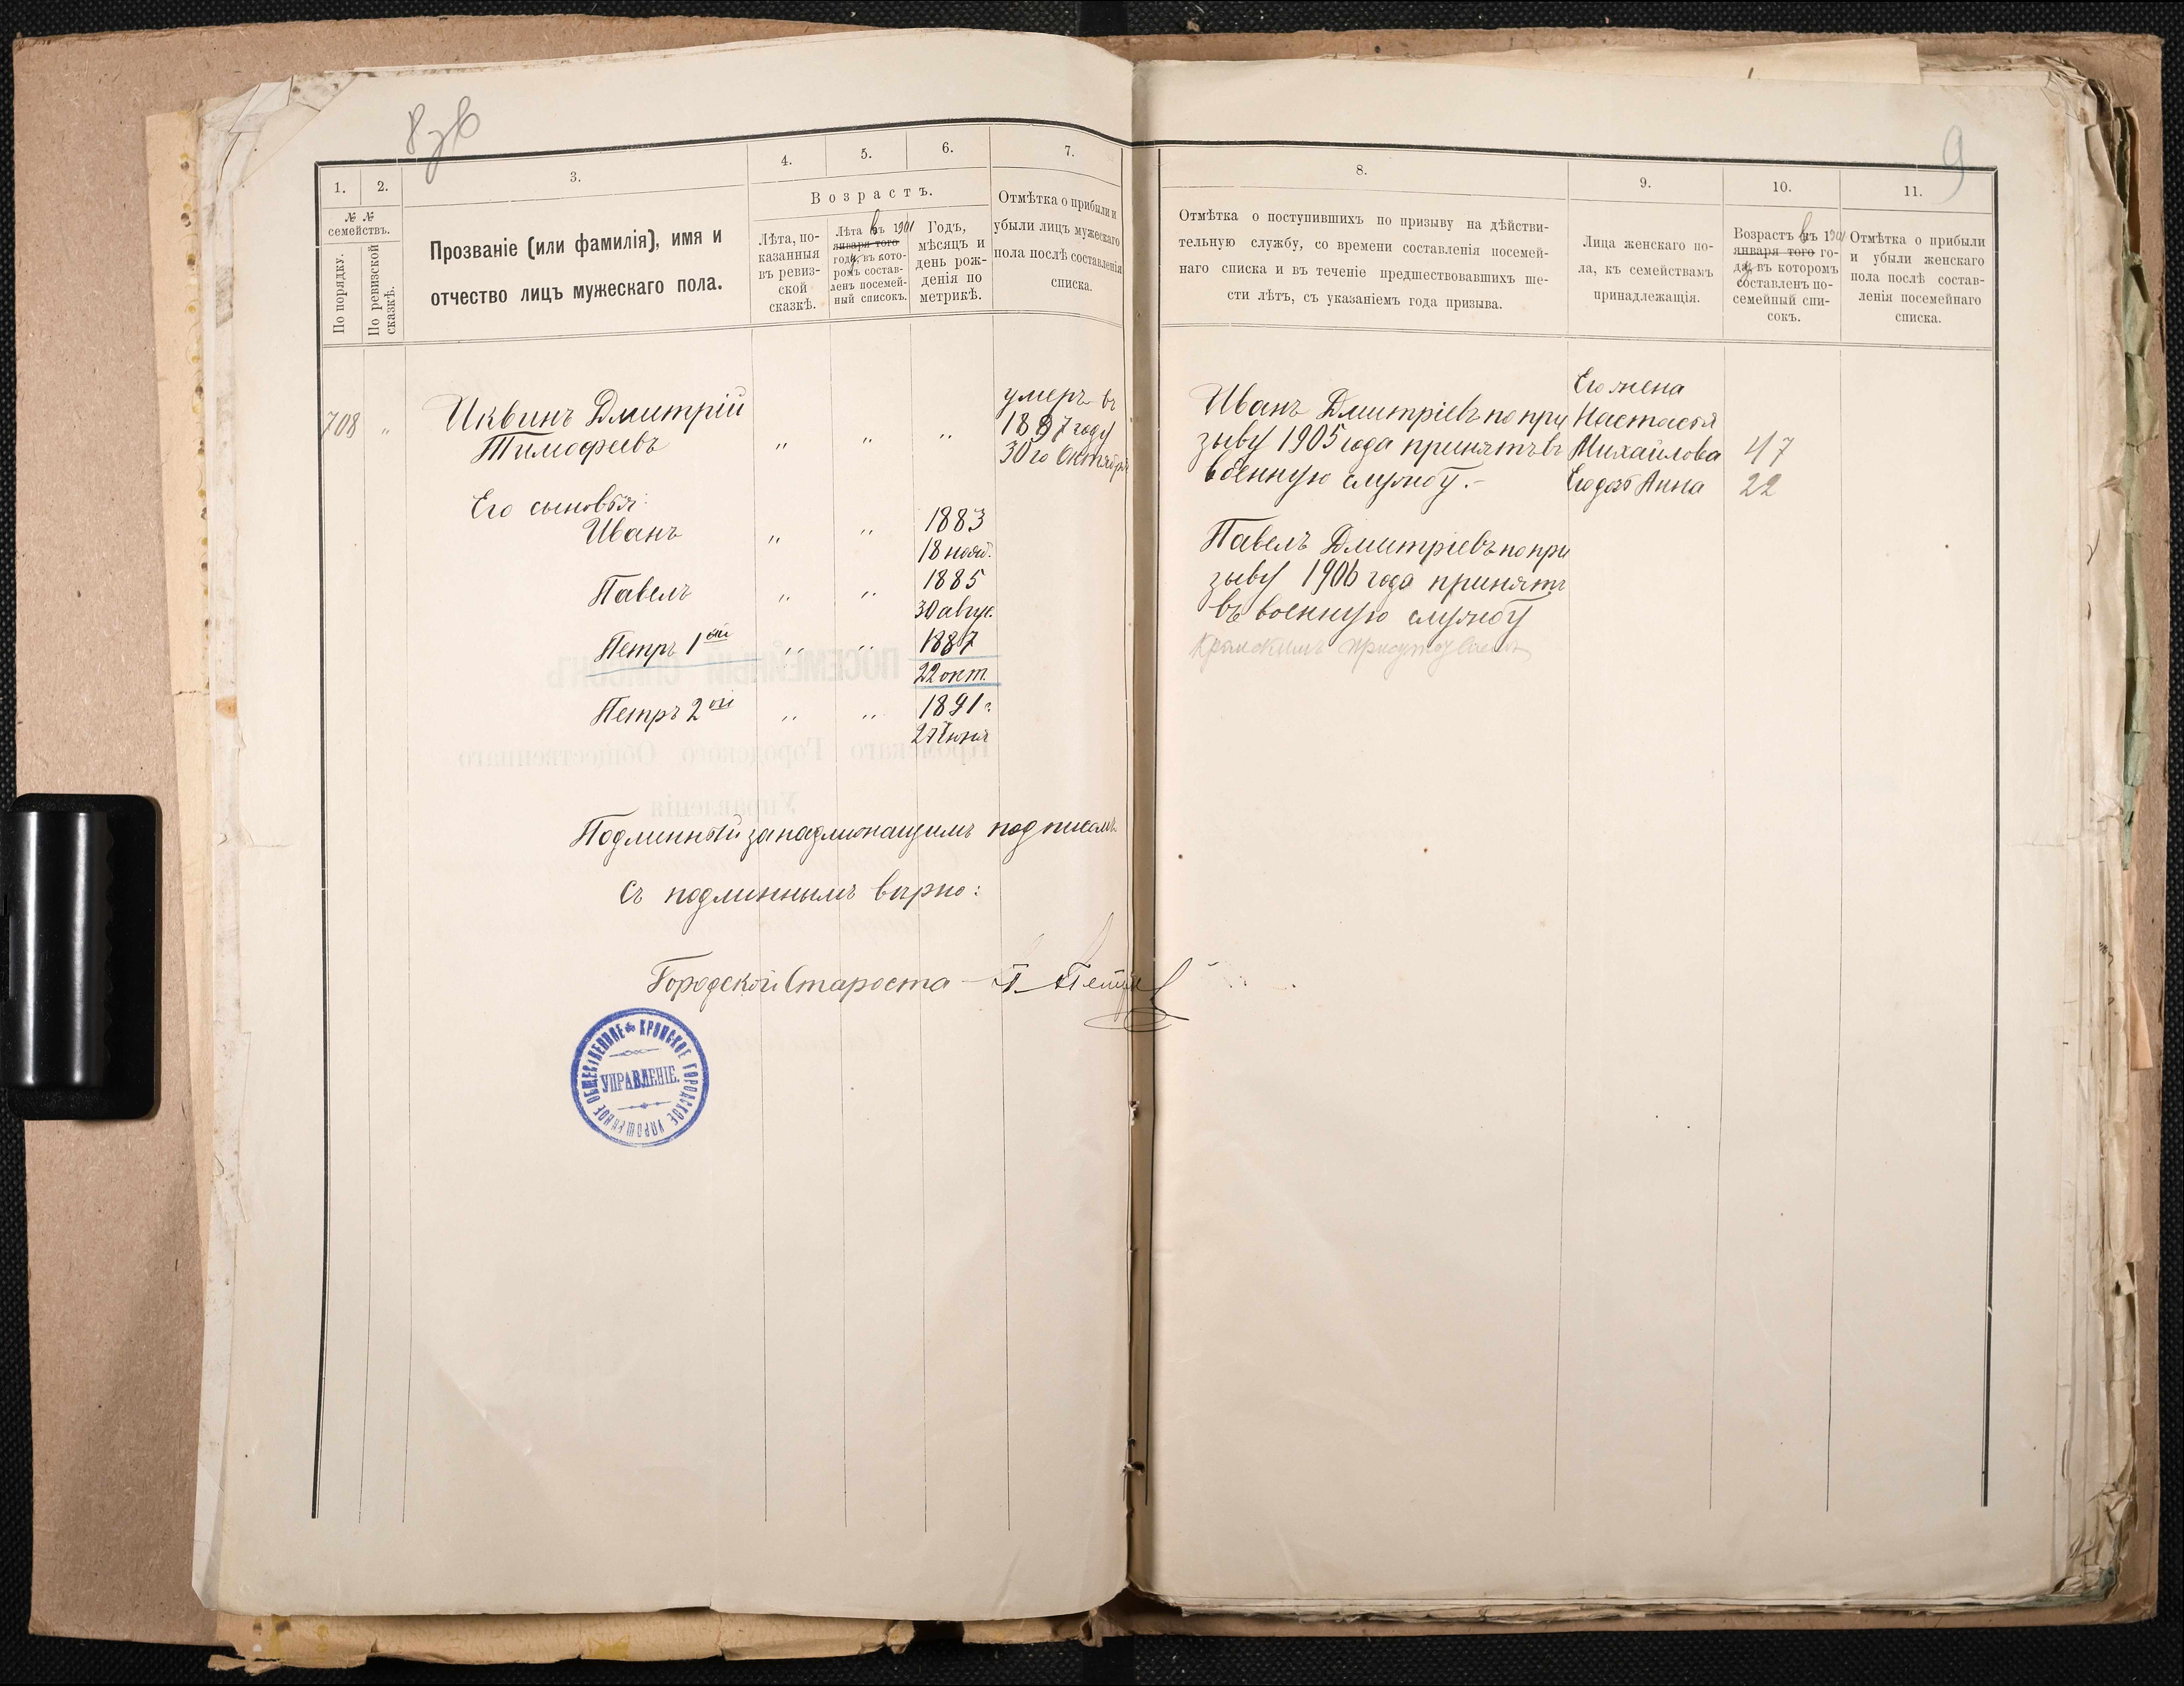 9
1.
2.
3.
4.
5.
6.
7.
№ №
семействъ.
По порядку.
По ревизской
сказкѣ.
Прозваніе (или фамилія), имя и
отчество лицъ мужескаго пола.
Возрастъ.
Лѣта, по-
казанныя
въ ревиз-
ской
сказкѣ.
Лѣта въ 1901
января того
году, въ кото-
ромъ состав-
ленъ посемей-
ный списокъ.
Годъ,
мѣсяцъ и
день рож-
денія по
метрикѣ.
Отмѣтка о прибыли и
убыли лицъ мужескаго
пола послѣ составленія
списка.
708 "
Иквинъ Дмитрій
Тимофеевъ
" " "
умеръ въ
1897 году
30го Октября
Его сыновья:
Иванъ " " 1883
18 нояб.
Павелъ " " 1885
30 авгус.
Петръ 1ый " " 1887
22 окт.
Петръ 2ой " " 1891 г.
27 Іюня
Подлинный за надлежащимъ подписомъ
Съ подлиннымъ вѣрно:
Городской Староста
КРОМСКОЕ ГОРОДСКОЕ УПРОЩЕННОЕ ОБЩЕСТВЕННОЕ
УПРАВЛЕНІЕ.
8.
9.
10.
11.
Отмѣтка о поступившихъ по призыву на дѣйстви-
тельную службу, со времени составленія посемей-
наго списка и въ теченіе предшествовавшихъ ше-
сти лѣтъ, съ указаніемъ года призыва.
Лица женскаго по-
ла, къ семействамъ
принадлежащія.
Возрастъ въ 1901
января того го-
да, въ которомъ
составленъ по-
семейный спи-
сокъ.
Отмѣтка о прибыли
и убыли женскаго
пола послѣ состав-
ленія посемейнаго
списка.
Иванъ Дмитріевъ по при
зыву 1905 года принятъ въ
военную службу.-
Павелъ Дмитріевъ по при
зыву 1906 года принятъ
въ военную службу
Его жена
Настасья
Михайлова 47
Его дочь Анна 22